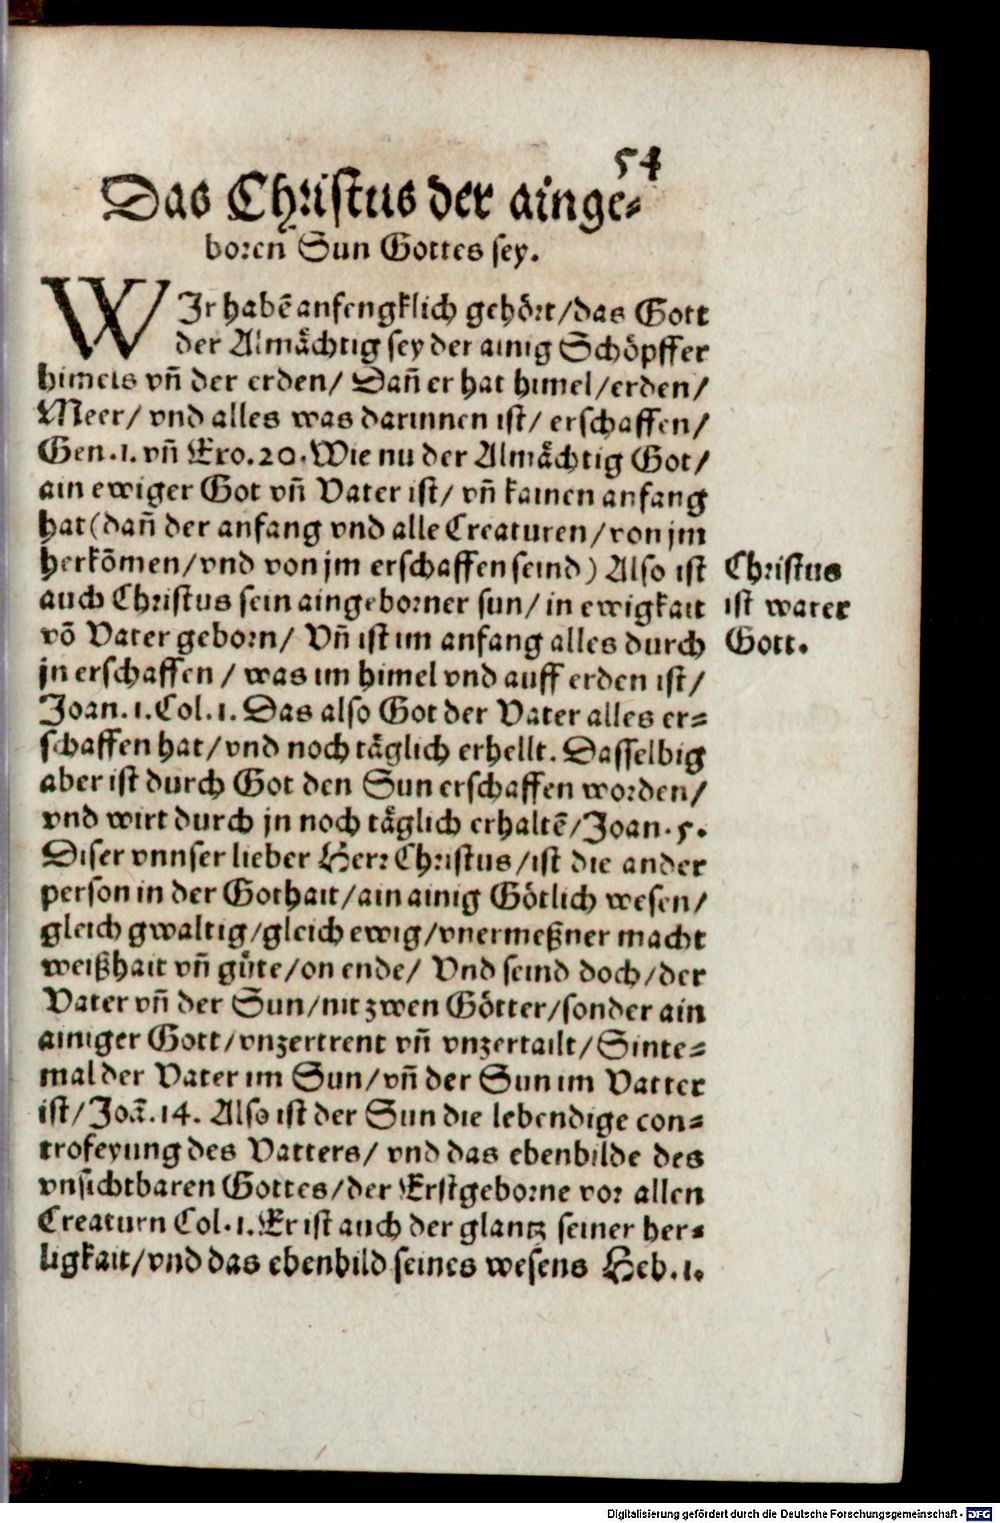 54
Das Christus der ainge-
boren Sun Gottes sey.
WJr habē anfengklich gehört/das Gott
der Almåchtig sey der ainig Schöpffer
himels vñ der erden/ Dañ er hat himel/erden/
Meer/ vnd alles was darinnen ist/ erschaffen/
Gen.1. vñ Exo.20. Wie nu der Almåchtig Got/
ain ewiger Got vñ Vater ist/ vñ kainen anfang
hat (dañ der anfang vnd alle Creaturen/von jm
herkōmen/vnd von jm erschaffen seind) Also ist
auch Christus sein aingeborner sun/ in ewigkait
vō Vater geborn/ Vñ ist im anfang alles durch
jn erschaffen / was im himel vnd auff erden ist/
Joan.1.Col.1. Das also Got der Vater alles er-
schaffen hat/vnd noch tåglich erhellt. Dasselbig
aber ist durch Got den Sun erschaffen worden/
vnd wirt durch jn noch tåglich erhaltē/Joan.5.
Diser vnnser lieber Herr Christus/ist die ander
person in der Gothait/ain ainig Götlich wesen/
gleich gwaltig/gleich ewig/vnermeßner macht
weißhait vñ gůte/on ende/ Vnd seind doch/der
Vater vñ der Sun/nit zwen Götter/sonder ain
ainiger Gott/vnzertrent vñ vnzertailt/Sinte-
mal der Vater im Sun/vñ der Sun im Vatter
ist/Joā.14. Also ist der Sun die lebendige con-
trofeyung des Vatters/ vnd das ebenbilde des
vnsichtbaren Gottes/der Erstgeborne vor allen
Creaturn Col.1. Er ist auch der glantz seiner her-
ligkait/vnd das ebenbild seines wesens Heb.1.
Christus
ist warer
Gott.
Digitalisierung gefördert durch die Deutsche Forschungsgemeinschaft - DFG